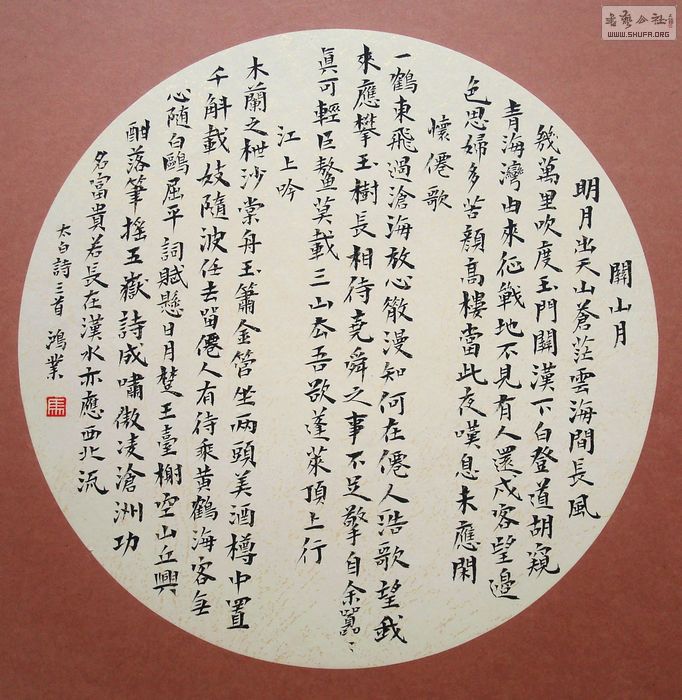 關山月
明月出天山蒼茫雲海間長風
幾萬里吹度玉門關漢下白登道胡窺
青海灣由來征戰地不見有人還戍客望邊
色思婦多苦顏高樓當此夜嘆息未應閑
懷僊歌
一鶴東飛過滄海放心散漫知何在僊人浩歌望我
來應攀玉樹長相待堯舜之事不足擎自余囂〻
真可輕巨鰲莫載三山去吾欲蓬萊頂上行
江上吟
木蘭之枻沙棠舟玉簫金管坐兩頭美酒樽中置
千斛載妓隨波任去留僊人有待乘黃鶴海客無
心隨白鷗屈平詞賦懸日月楚王臺榭空山丘興
酣落筆搖五嶽詩成嘯傲凌滄洲功
名富貴若長在漢水亦應西北流
太白詩三首 鴻業
馬
書藝公社
WWW.SHUFA.ORG